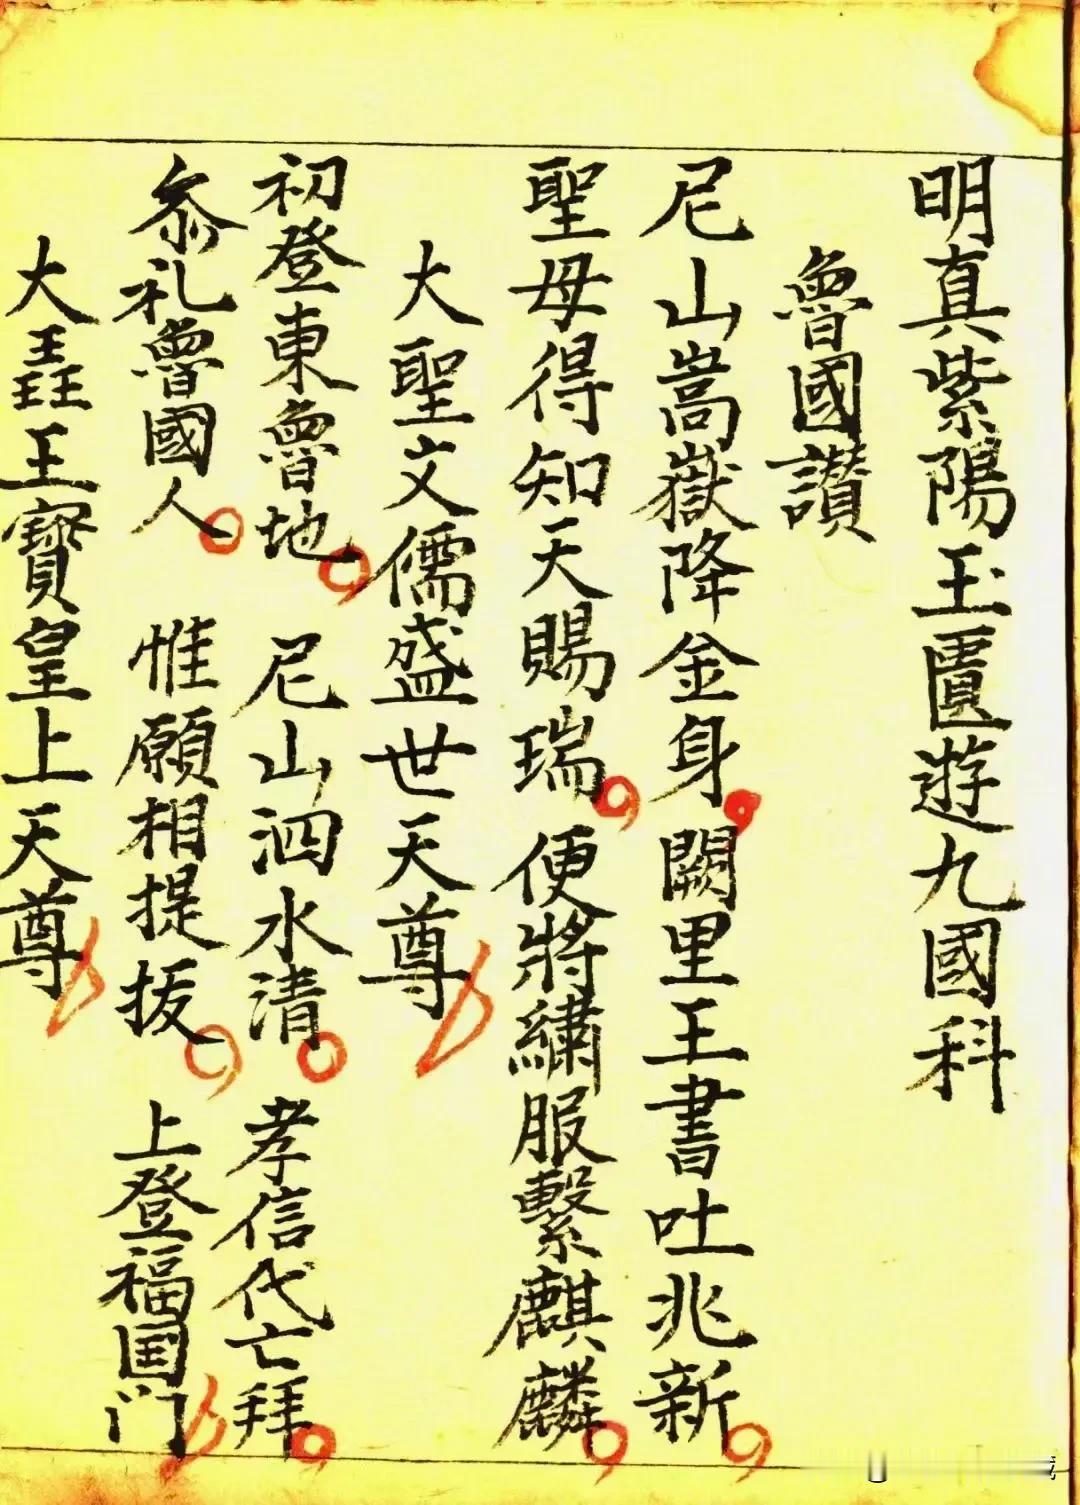 明真紫陽玉匱遊九國科
魯國讃
尼山嵩嶽降金身 闕里王書吐兆新
聖母得知天賜瑞 便將繡服繫麒麟
大聖文儒盛世天尊
初登東魯地 尼山泗水清 孝信代亡拜
叅礼魯國人 惟願相提拔 上登福国门
大𤫉王寶皇上天尊